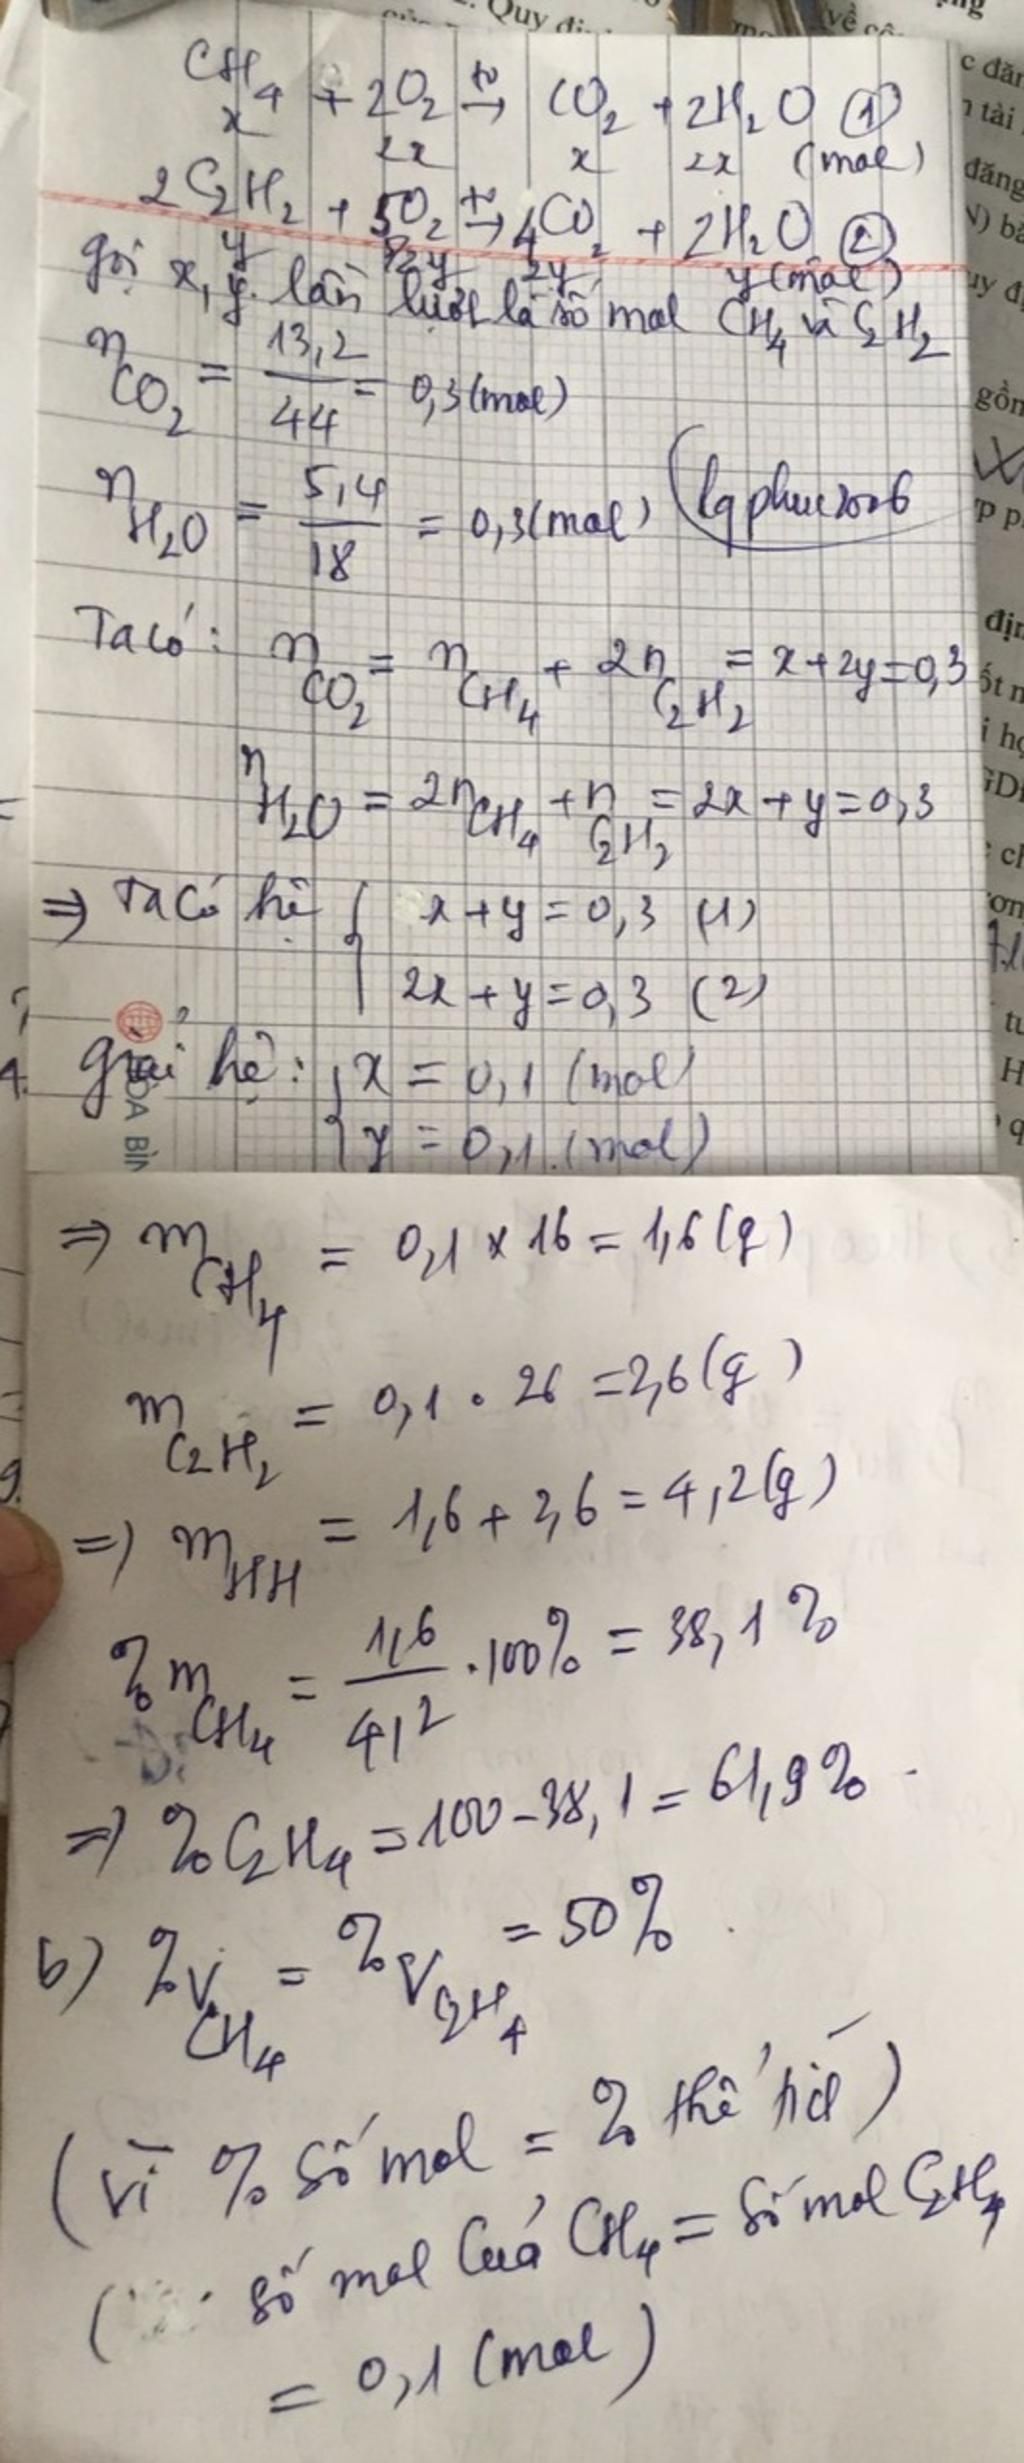 CH₄ + 2O₂ →(t⁰) CO₂ + 2H₂O (1)
x 2x x 2x (mol)
2C₂H₂ + 5O₂ →(t⁰) 4CO₂ + 2H₂O (2)
y 5/2y 2y y (mol)
gọi x, y lần lượt là số mol CH₄ và C₂H₂
nCO₂ = 13,2/44 = 0,3 (mol)
nH₂O = 5,4/18 = 0,3 (mol) lqphuc2006
Ta có: nCO₂ = nCH₄ + 2nC₂H₂ = x + 2y = 0,3
nH₂O = 2nCH₄ + nC₂H₂ = 2x + y = 0,3
⇒ Ta có hệ { x + y = 0,3 (1)
2x + y = 0,3 (2)
giải hệ: { x = 0,1 (mol)
y = 0,1 (mol)
⇒ mCH₄ = 0,1 × 16 = 1,6 (g)
mC₂H₂ = 0,1 . 26 = 2,6 (g)
⇒ mHH = 1,6 + 2,6 = 4,2 (g)
%mCH₄ = 1,6/4,2 . 100% = 38,1%
⇒ %C₂H₄ = 100 - 38,1 = 61,9%
b) %VCH₄ = %VC₂H₄ = 50%
(vì % số mol = % thể tích)
( số mol của CH₄ = số mol C₂H₄
= 0,1 (mol)